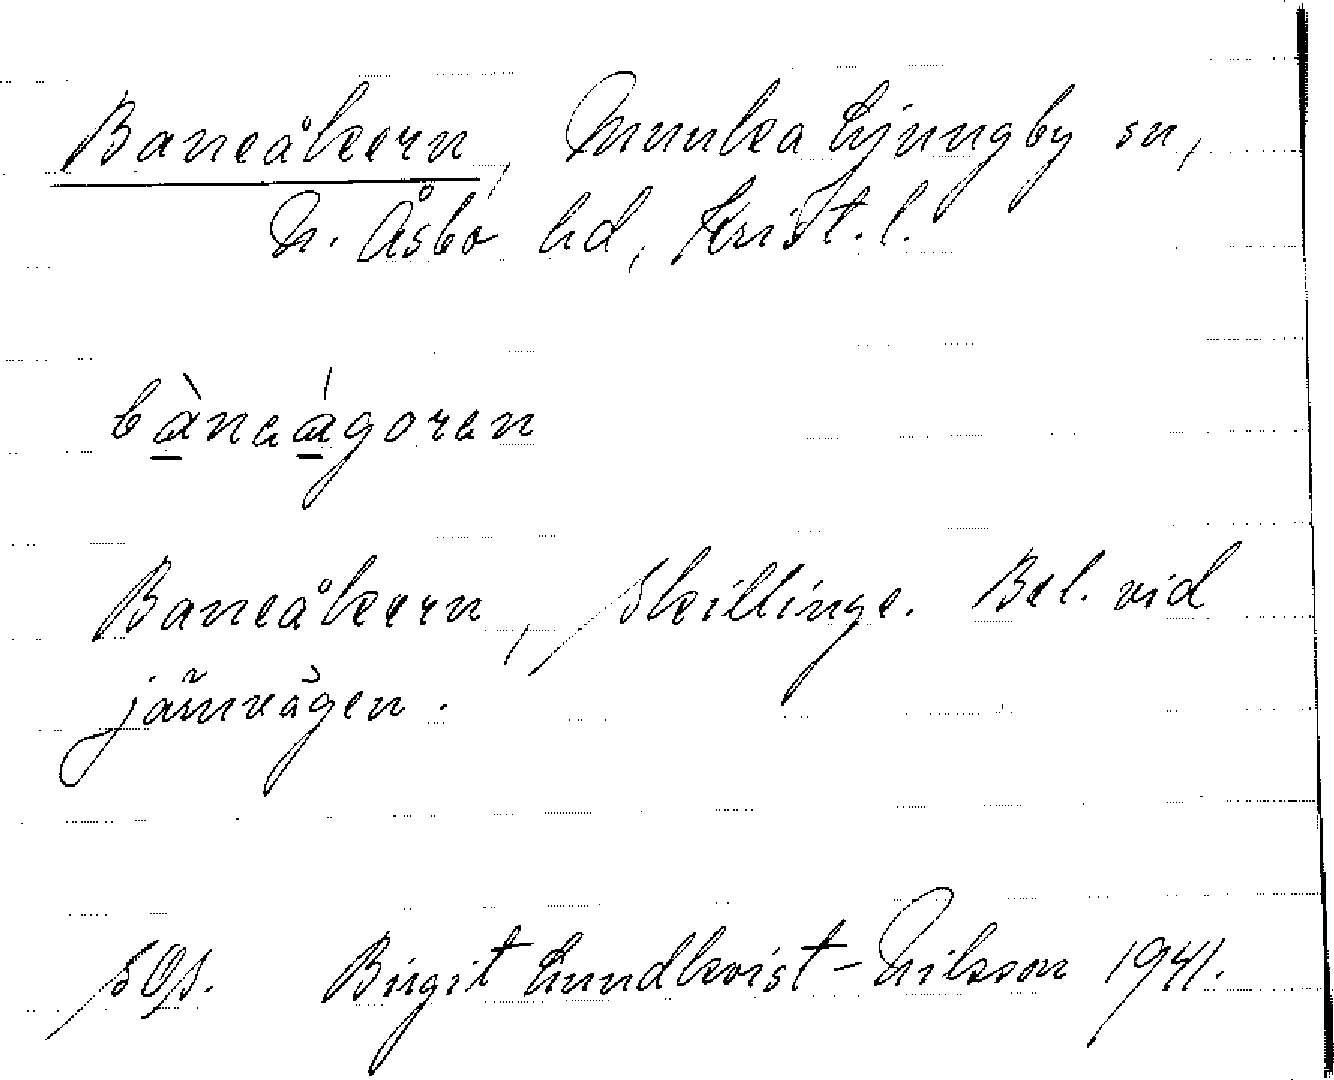 Baneåkern, Munka Ljungby sn,
N. Åsbo hd, Krist. l.
bànaágoran
Baneåkern, Skillinge. Bel. vid
järnvägen.
Birgit Lundkvist-Nilsson 1941.